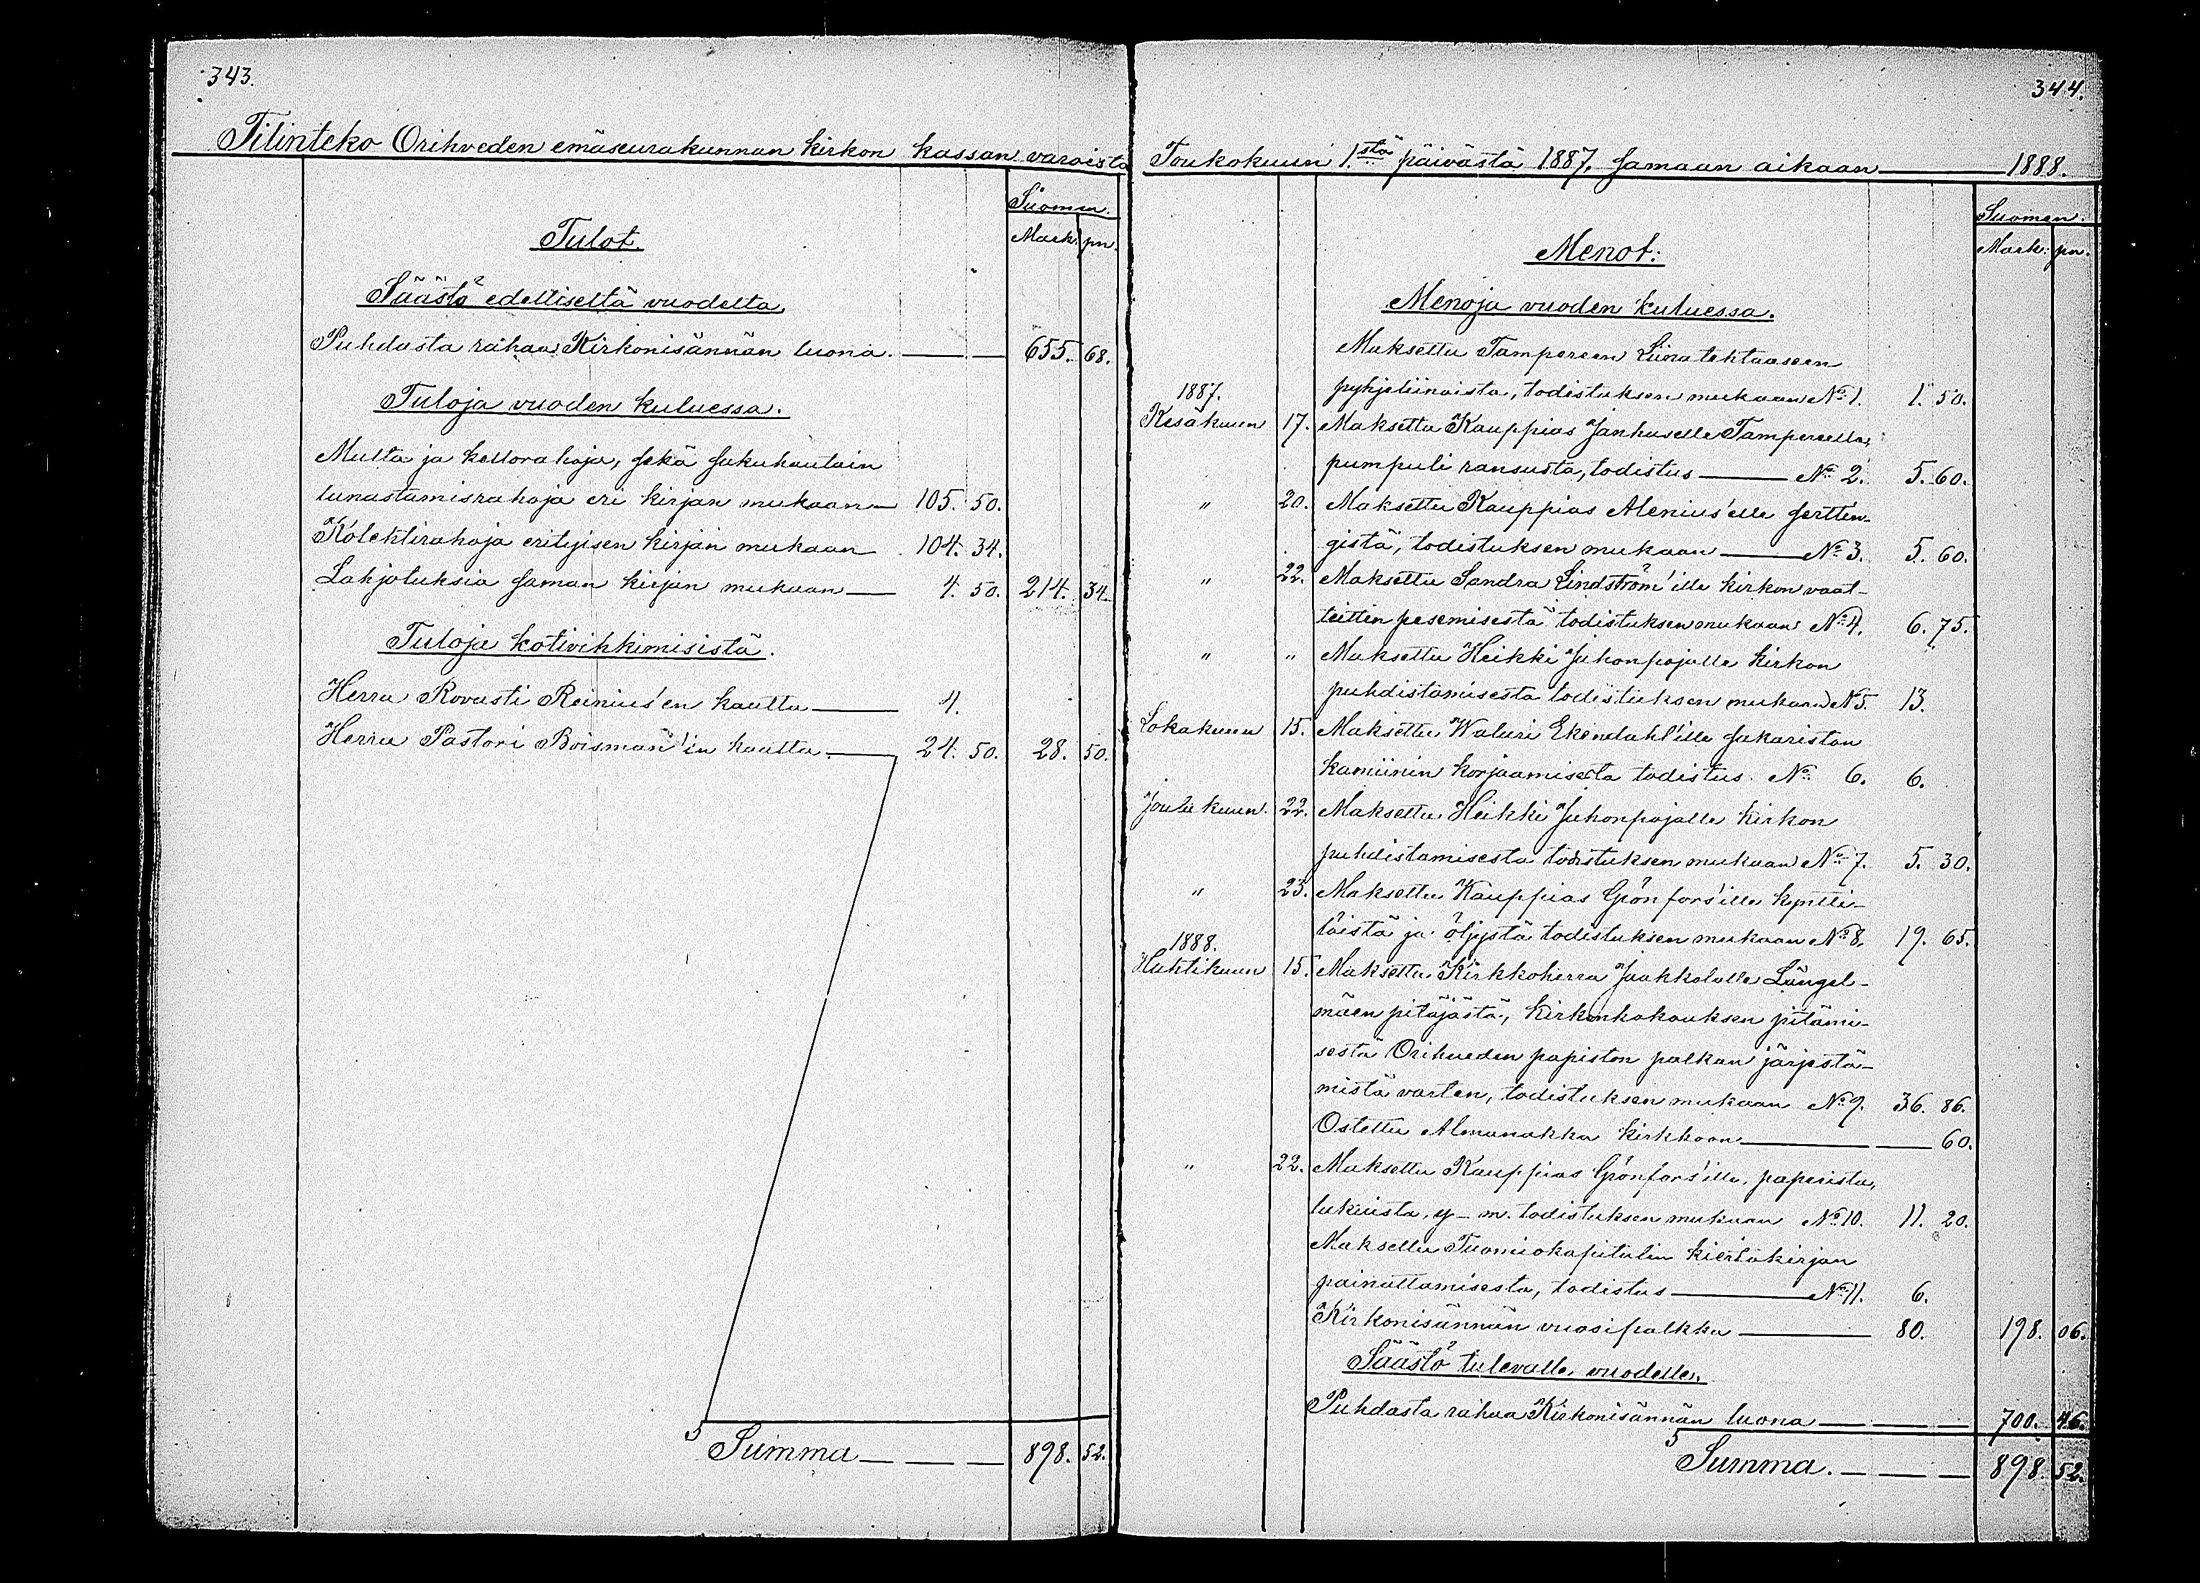 343.
Tilinteko Orihveden emäseurakunnan kirkon kassan varoista
Suomen.
Mark. pn.
Tulot.
Säästö edelliseltä vuodelta
Puhdasta rahaa Kirkonisännän luona. 655. 68.
Tuloja vuoden kuluessa.
Multa ja kellorahoja, sekä sukuhautain
lunastamisrahoja eri kirjan mukaan 105. 50.
Kolehtirahoja erityisen kirjan mukaan 104. 34.
Lahjotuksia saman kirjan mukaan 4. 50. 214. 34.
Tuloja kotivihkimisistä.
Herra Rovasti Reinius'en kautta 4.
Herra Pastori Boisman'in kautta 24. 50. 28. 50.
Summa 898. 52.
344.
Toukokuun 1.stä päivästä 1887, samaan aikaan 1888.
Suomen.
Mark. pn.
Menot:
Menoja vuoden kuluessa.
Maksettu Tampereen Liinatehtaaseen
1887. pyhjeliinoista, todistuksen mukaan No 1. 1. 50.
Kesäkuun 17. Maksettu Kauppias Janhuselle Tampereella,
pumpuli ransusta, todistus No 2. 5. 60.
" 20. Maksettu Kauppias Alenius'elle sertten-
gistä, todistuksen mukaan No 3. 5. 60.
" 22. Maksettu Sandra Lindström'ille kirkon vaat-
teitten pesemisestä todistuksen mukaan No 4. 6. 75.
" " Maksettu Heikki Juhonpojalle kirkon
puhdistamisesta todistuksen mukaan No 5. 13.
Lokakuun 15. Maksettu Waluri Ekendahl'ille sakariston
kamiinin korjaamisesta todistus No 6. 6.
Joulukuun. 22. Maksettu Heikki Juhonpojalle kirkon
puhdistamisesta todistuksen mukaan No 7. 5. 30.
" 23. Maksettu Kauppias Grönfors'ille kyntti-
löistä ja öljystä todistuksen mukaan No 8. 19. 65.
1888.
Huhtikuun 15. Maksettu Kirkkoherra Jaakkolalle Längel-
mäen pitäjästä, kirkonkokouksen pitämi-
sestä Orihveden papiston palkan järjestä-
mistä varten, todistuksen mukaan No 9. 36. 86.
Ostettu Almanakka kirkkoon 60.
" 22. Maksettu Kauppias Grönfors'ille, paperista,
lukuista, y- m. todistuksen mukaan No 10. 11. 20.
Maksettu Tuomiokapitulin kiertokirjan
painattamisesta, todistus No 11. 6.
Kirkonisännän vuosipalkka 80. 198. 06.
Säästö tulevalle vuodelle.
Puhdasta rahaa Kirkonisännän luona 700. 46.
Summa. 898. 52.